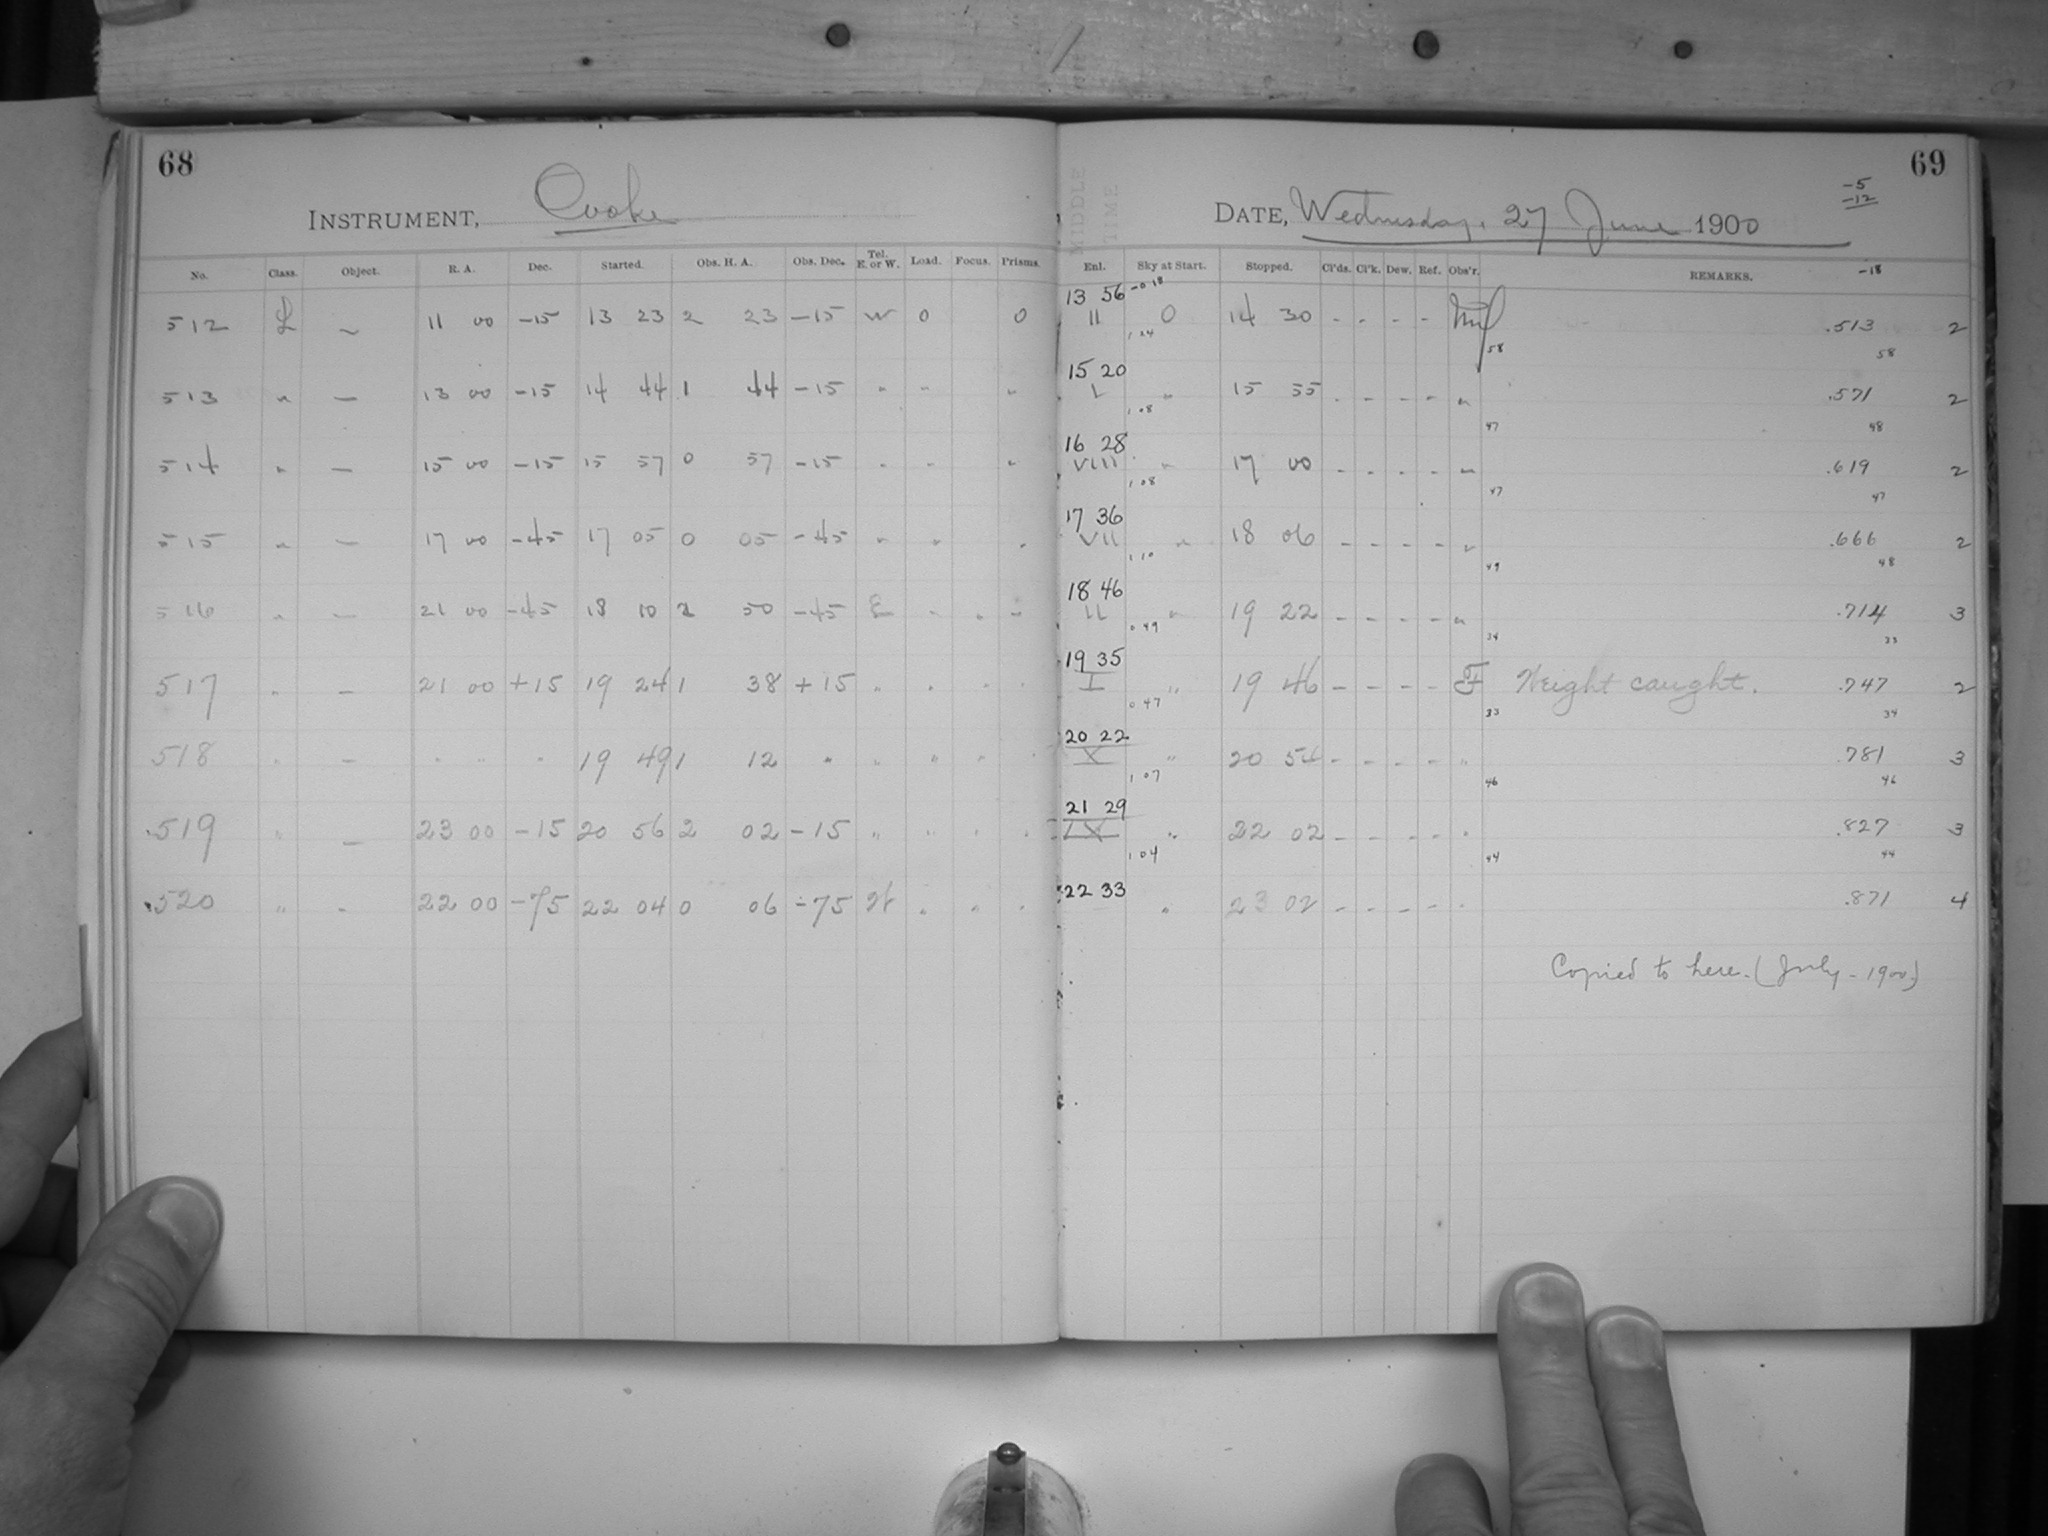 68
INSTRUMENT, Cooke
No. Class. Object. R. A. Dec. Started. Obs. H. A. Obs. Dec. Tel. E. or W. Load. Focus. Prisms.
512 L – 11 00 -15 13 23 2 23 -15 W 0 0
513 " – 13 00 -15 14 44 1 44 -15 " " "
514 " – 15 00 -15 15 57 0 57 -15 " " "
515 " – 17 00 -45 17 05 0 05 -45 " " "
516 " – 21 00 -45 18 10 2 50 -45 E " " "
517 " – 21 00 +15 19 24 1 38 +15 " " " "
518 " – " " " 19 49 1 12 " " " " "
519 " – 23 00 -15 20 56 2 02 -15 " " " "
520 " – 22 00 -75 22 04 0 06 -75 W " " "
69
-5
-12
DATE, Wednesday, 27 June 1900
MIDDLE TIME
Enl. Sky at Start. Stopped. Cl'ds. Cl'k. Dew. Ref. Obs'r. REMARKS. -18
13 56 -0 18
II 0 14 30 - - - - .513 2
1 24 58 58
15 20
I " 15 55 - - - - " .571 2
1 08 47 48
16 28
VIII " 17 00 - - - - " .619 2
1 08 47 47
17 36
VII " 18 06 - - - - " .666 2
1 10 49 48
18 46
II " 19 22 - - - - " .714 3
0 49 34 33
19 35
I " 19 46 - - - - F Weight caught. .747 2
0 47 33 34
20 22
X " 20 54 - - - - " .781 3
1 07 46 46
21 29
IX " 22 02 - - - - " .827 3
1 04 44 44
22 33
" 23 02 - - - - " .871 4
Copied to here. (July - 1900)